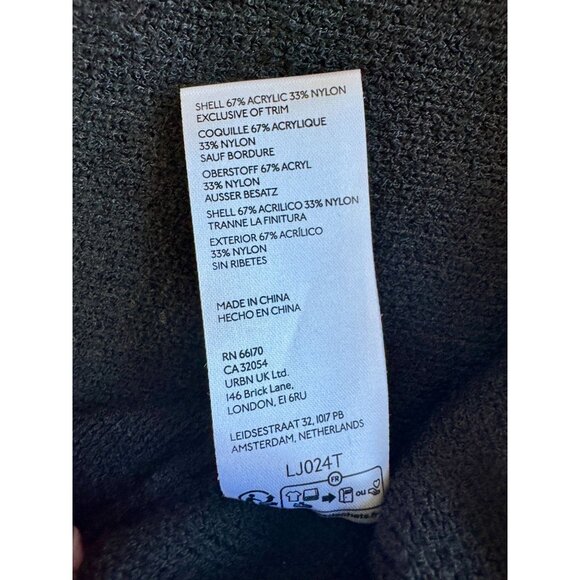 SHELL 67% ACRYLIC 33% NYLON
EXCLUSIVE OF TRIM
COQUILLE 67% ACRYLIQUE
33% NYLON
SAUF BORDURE
OBERSTOFF 67% ACRYL
33% NYLON
AUSSER BESATZ
SHELL 67% ACRILICO 33% NYLON
TRANNE LA FINITURA
EXTERIOR 67% ACRÍLICO
33% NYLON
SIN RIBETES
MADE IN CHINA
HECHO EN CHINA
RN 66170
CA 32054
URBN UK Ltd.
146 Brick Lane,
LONDON, E1 6RU
LEIDSESTRAAT 32, 1017 PB
AMSTERDAM, NETHERLANDS
LJ024T
FR
ou